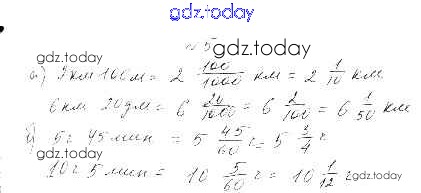 gdz.today
№ 5 gdz.today
gdz.today
а) 2 км 100 м = 2 100/1000 км = 2 1/10 км
6 км 20 дм = 6 20/1000 = 6 2/100 = 6 1/50 км
б) 5 ч 45 мин = 5 45/60 ч = 5 3/4 ч
gdz.today
10 ч 5 мин = 10 5/60 ч = 10 1/12 ч
gdz.today